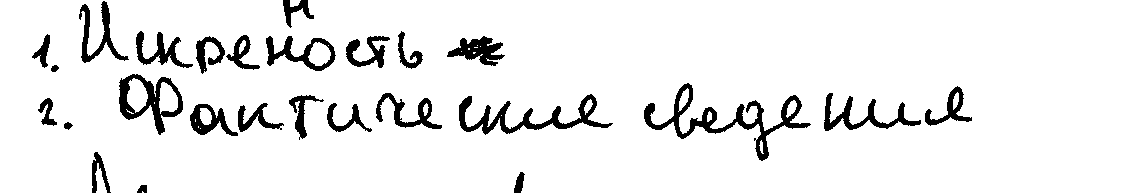 1. Искренность
2. Фактические сведения